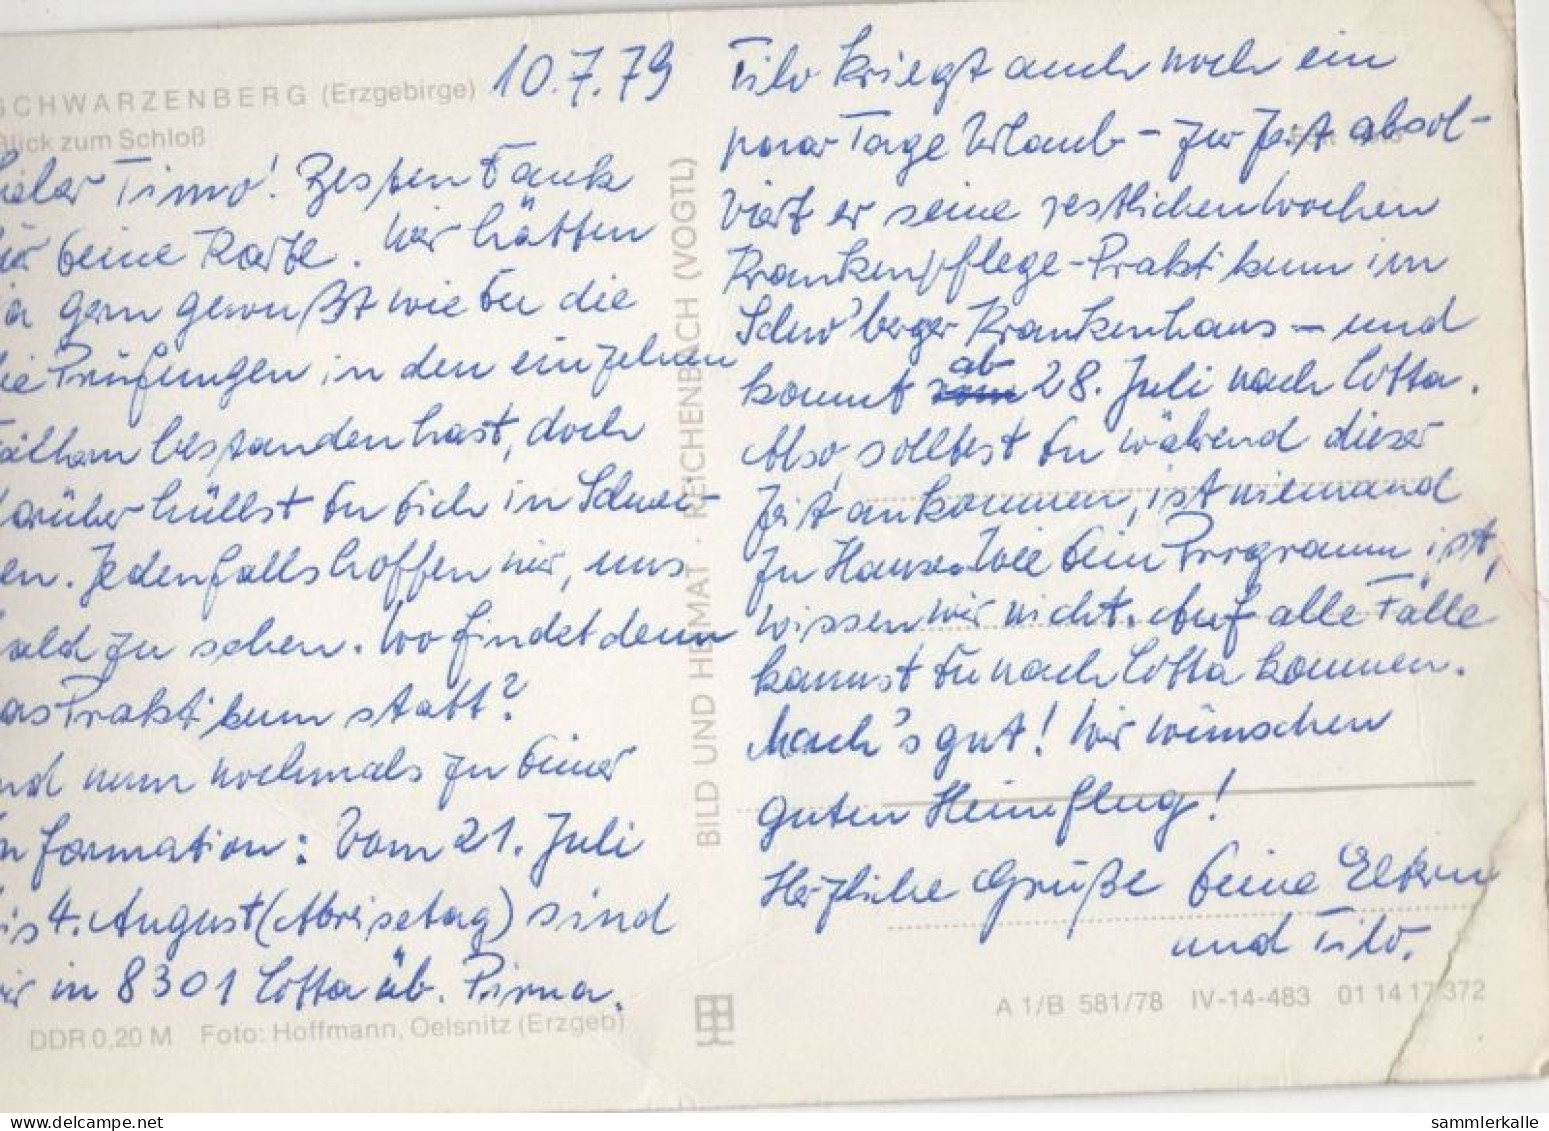 SCHWARZENBERG (Erzgebirge)
Blick zum Schloß
10.7.79
Lieber Timo! Besten Dank
für Deine Karte. Wir hätten
ja gern gewußt wie Du die
die Prüfungen in den einzelnen
Fächern bestanden hast, doch
darüber hüllst Du Dich in Schwei-
en. Jedenfalls hoffen wir, uns
bald zu sehen. Wo findet denn
das Praktikum statt?
Und nun nochmals zu Deiner
Information: Vom 21. Juli
bis 4. August (Abreisetag) sind
wir in 8301 Cotta üb. Pirna.
DDR 0,20 M Foto: Hoffmann, Oelsnitz (Erzgeb)
BILD UND HEIMAT · REICHENBACH (VOGTL)
Tilo kriegt auch noch ein
paar Tage Urlaub – zur Zeit absol-
viert er seine restlichen Wochen
Krankenpflege-Praktikum im
Schw'berger Krankenhaus – und
kommt ab 28. Juli nach Cotta.
Also, solltest Du während dieser
Zeit ankommen, ist niemand
zu Hause. Wie Dein Programm ist,
wissen wir nicht. Auf alle Fälle
kannst Du nach Cotta kommen.
Mach's gut! Wir wünschen
guten Heimflug!
Herzliche Grüße Deine
und Tilo.
A 1/B 581/78 IV-14-483 01 14 17 372
sammlerkalle